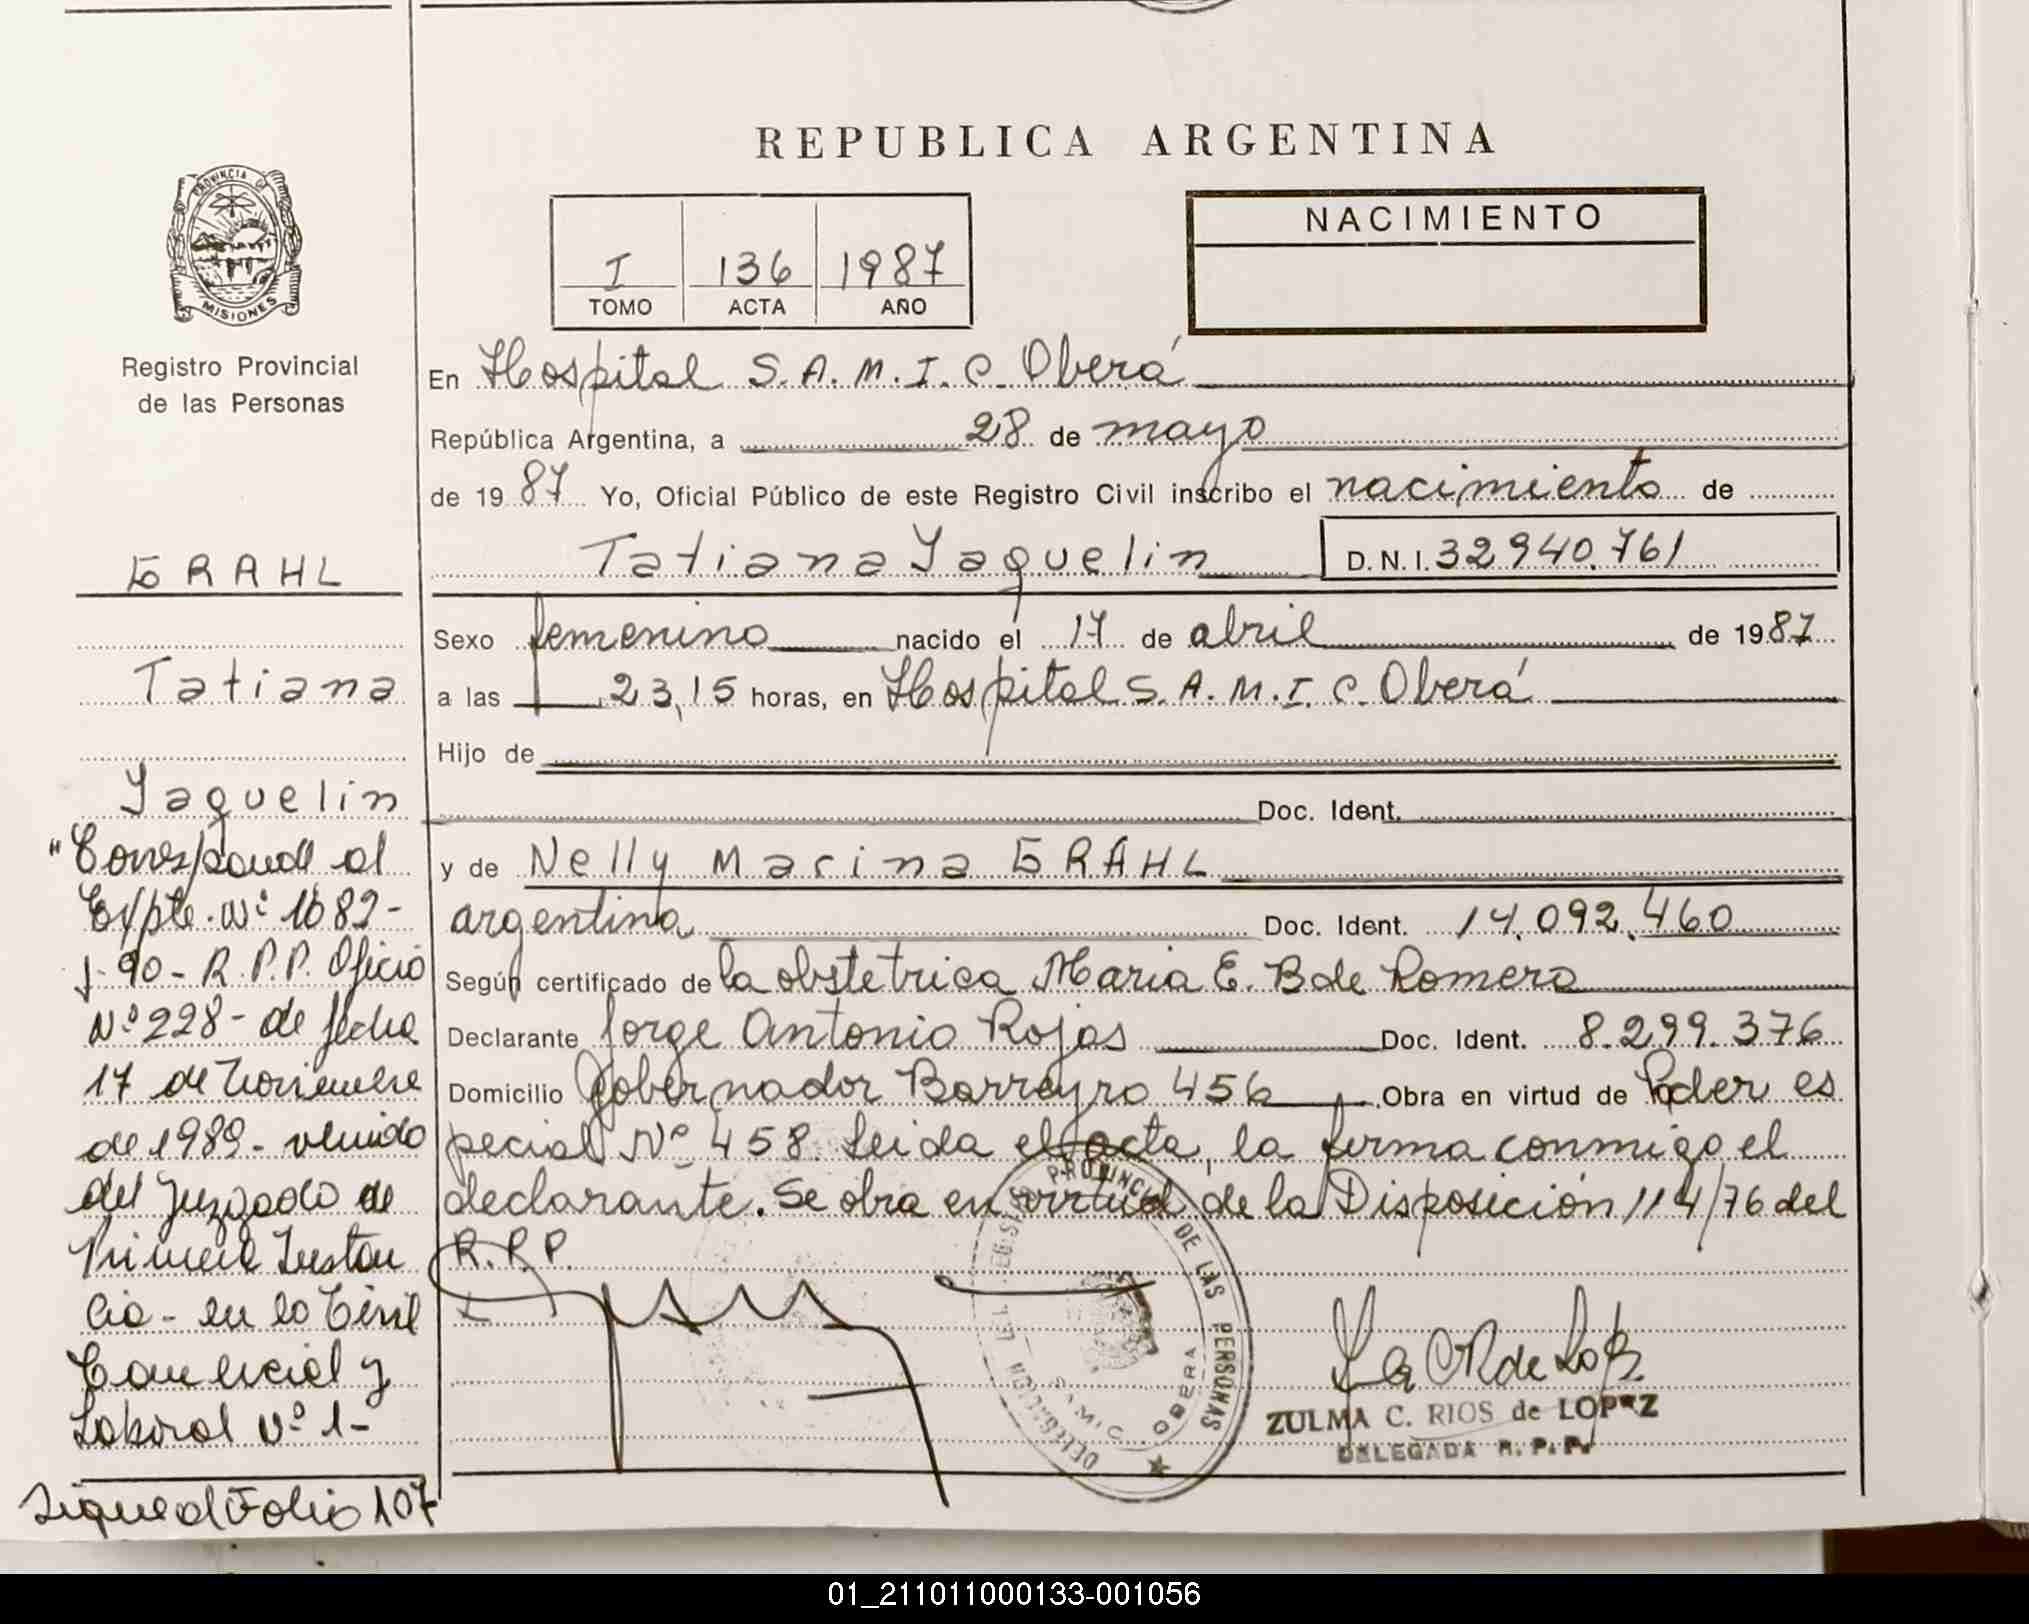 REPUBLICA ARGENTINA
PROVINCIA DE
MISIONES
Registro Provincial
de las Personas
I 136 1987
TOMO ACTA AÑO
NACIMIENTO
En Hospital S.A.M.I.C. Oberá
República Argentina, a 28 de mayo
de 1987 Yo, Oficial Público de este Registro Civil inscribo el nacimiento de
Tatiana Yaquelin D.N.I. 32.940.761
Sexo femenino nacido el 17 de abril de 1987
a las 23,15 horas, en Hospital S.A.M.I.C. Oberá
Hijo de
Doc. Ident.
y de Nelly Marina GRAHL
argentina Doc. Ident. 14.092.460
Según certificado de la obstetrica Maria E. B de Romero
Declarante Jorge Antonio Rojas Doc. Ident. 8.299.376
Domicilio Gobernador Barreyro 456 Obra en virtud de Poder es
pecial Nº 458. Leida el acta, la firma conmigo el
declarante. Se obra en virtud de la Disposición 114/76 del
R.P.P.
GRAHL
Tatiana
Yaquelin
"Corresponde al
Expte. Nº 1682-
J-90- R.P.P. Oficio
Nº 228- de fecha
17 de Noviembre
de 1989- venido
del Juzgado de
Primera Instan
cia- en lo Civil
Comercial y
Laboral Nº 1-
Sigue al Folio 107
PROVINCIAL DE LAS PERSONAS
DELEGACION
S.A.M.I.C. OBERA
ZULMA C. RIOS de LOPEZ
DELEGADA R.P.P.
01_211011000133-001056